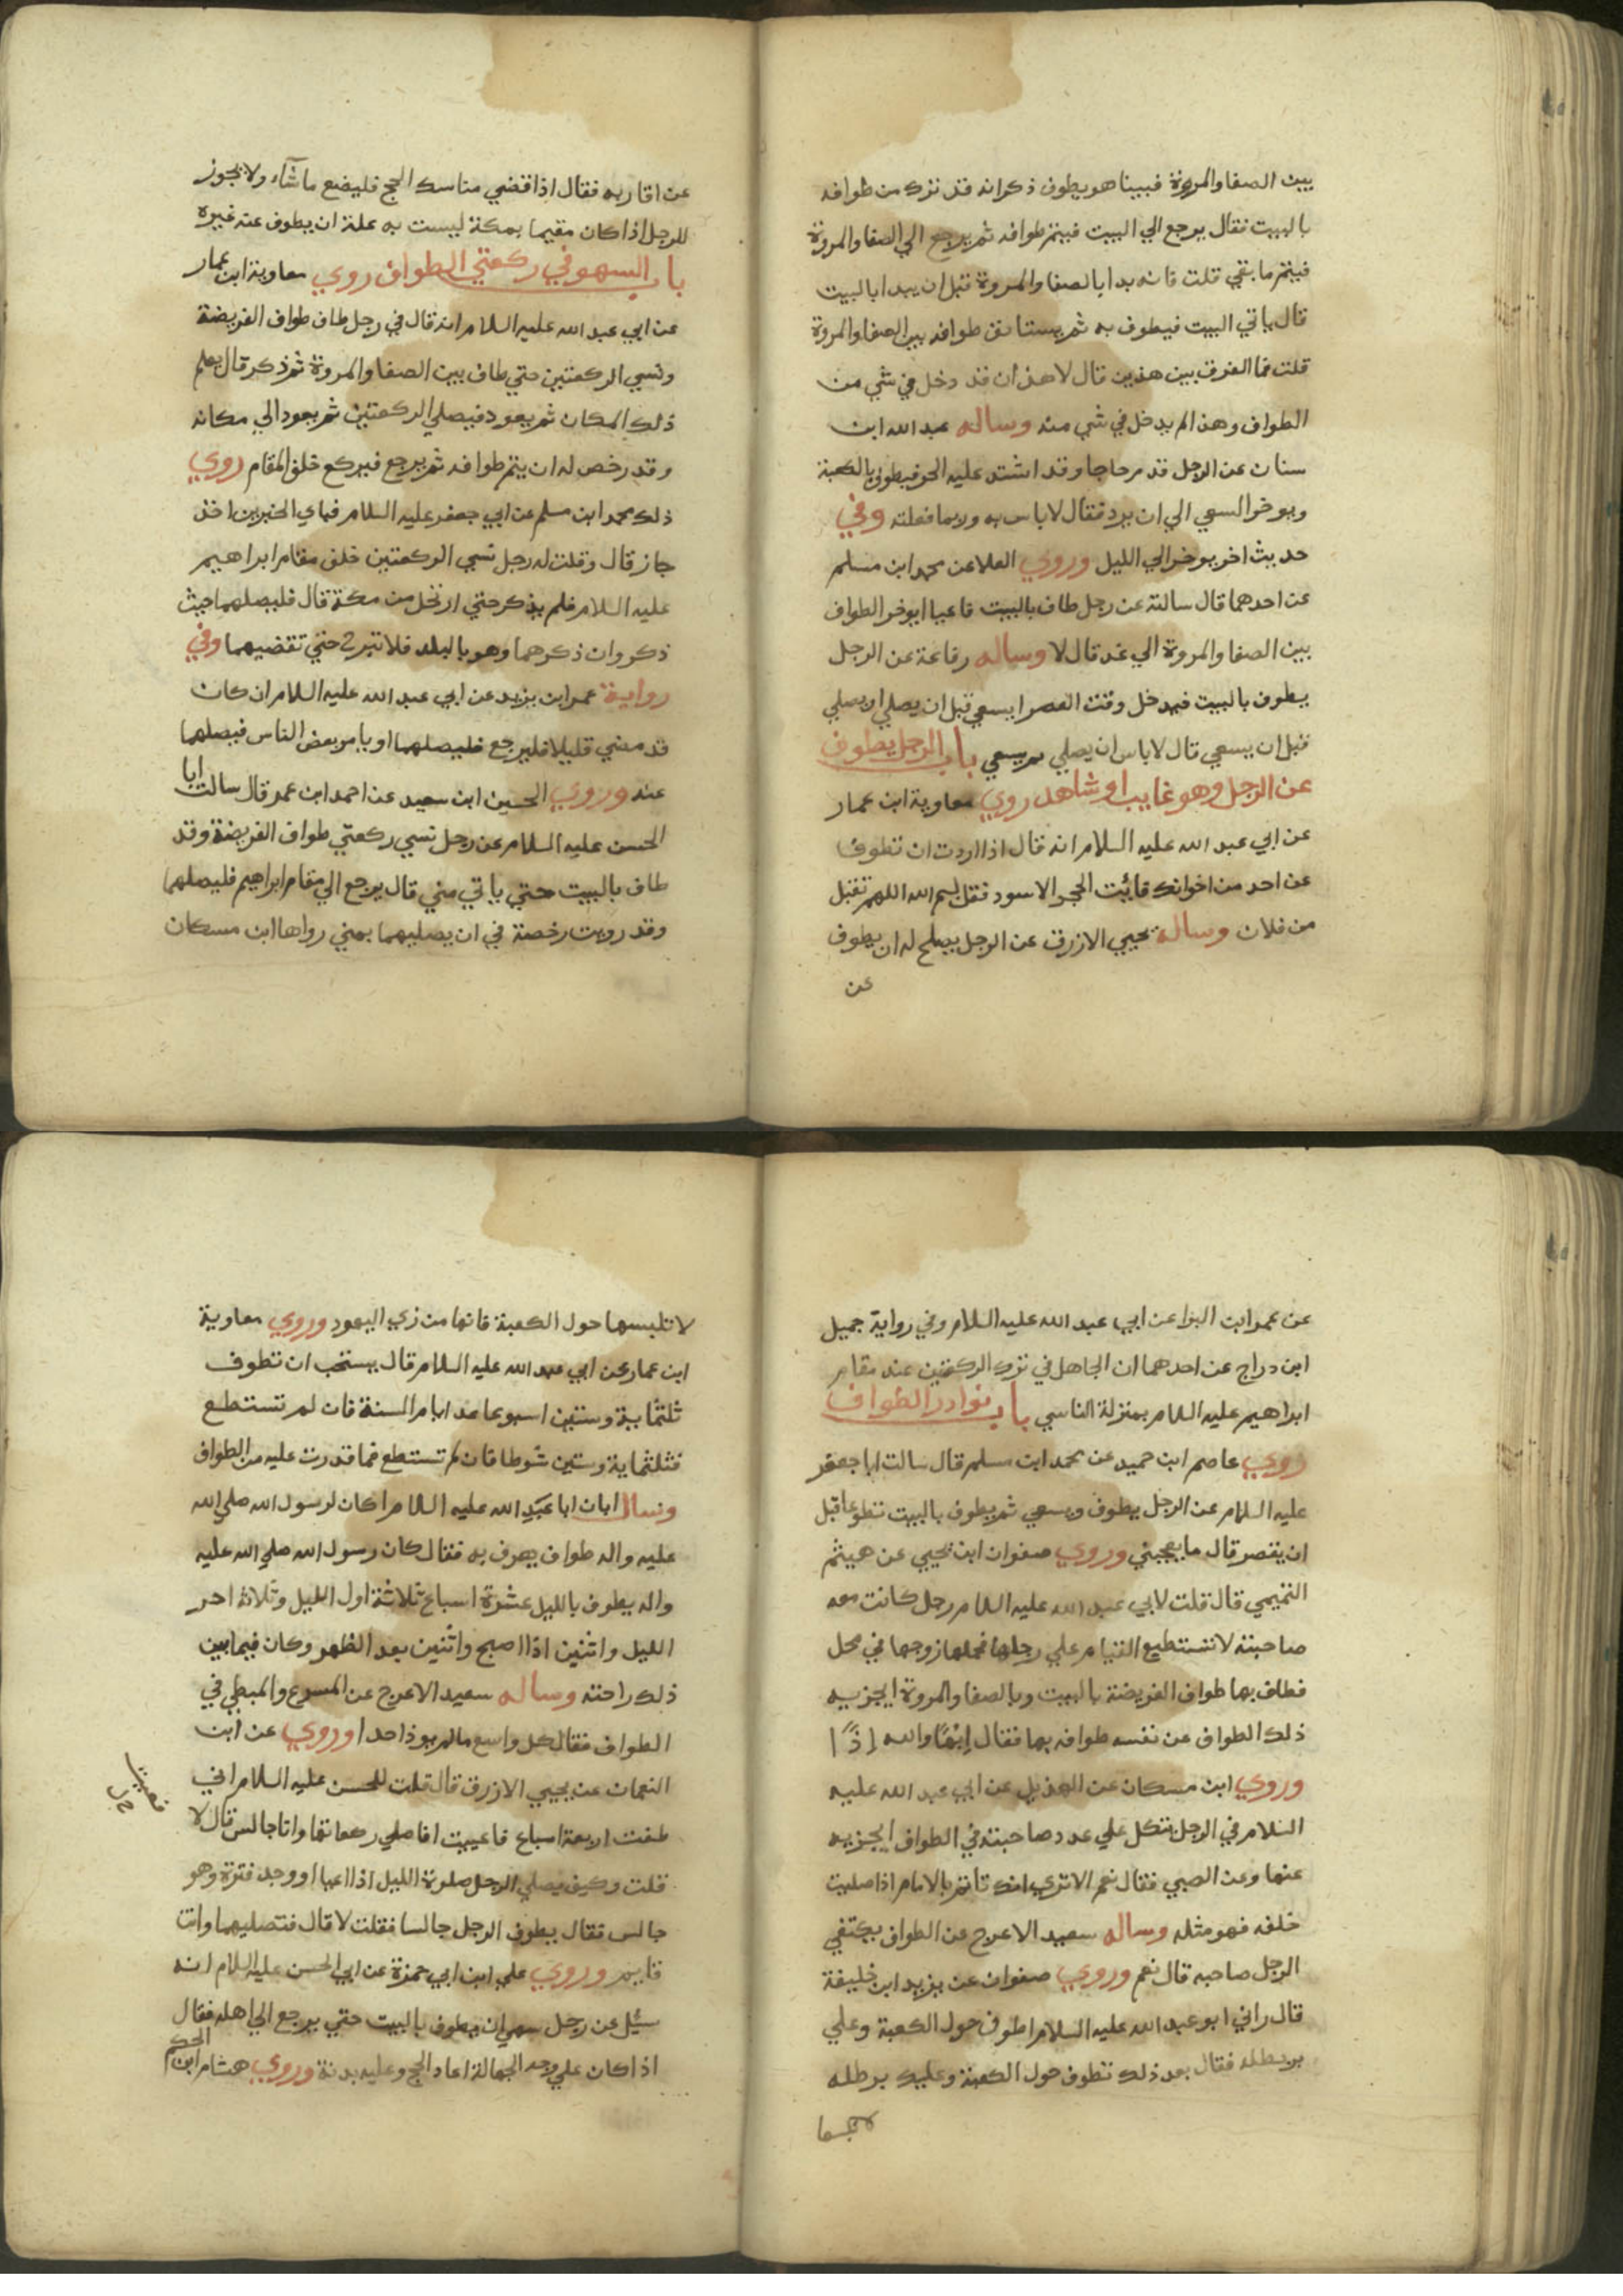 بين الصفا والمروة فبينا هو يطوف ذكر انه قد ترك من طوافه
بالبيت فقال يرجع الي البيت فيتم طوافه ثم يرجع الي الصفا والمروة
فيتم ما بقي قلت فانه بدا بالصفا والمروة قبل ان يبدا بالبيت
قال ياتي البيت فيطوف به ثم يستانف طوافه بين الصفا والمروة
قلت فما الفرق بين هذين قال لا هذا ان قد دخل في شي من
الطواف وهذا لم يدخل في شي منه وساله عبد الله ابن
سنان عن الرجل قد مر حاجا وقد اشتد عليه الحر فيطوف بالكعبة
ويوخر السعي الي ان يرد فقال لا باس به وربما فعلته وفي
حديث اخر يوخر الي الليل وروي العلا عن محمد ابن مسلم
عن احدهما قال سالته عن رجل طاف بالبيت فاعيا ايوخر الطواف
بين الصفا والمروة الي غد قال لا وساله رفاعة عن الرجل
يطوف بالبيت فيدخل وقت العصر ايسعي قبل ان يصلي او يصلي
قبل ان يسعي قال لا باس ان يصلي ثم يسعي باب الرجل يطوف
عن الرجل وهو غايب او شاهد روي معاوية ابن عمار
عن ابي عبد الله عليه السلام انه قال اذا اردت ان تطوف
عن احد من اخوانك فائت الحجر الاسود فقل بسم الله اللهم تقبل
من فلان وساله يحيي الازرق عن الرجل يصلح له ان يطوف
عن
عن اقاربه فقال اذا قضي مناسك الحج فليضع ما شاء ولا يجوز
للرجل اذا كان مقيما بمكة ليست به علة ان يطوف عنه غيره
باب السهو في ركعتي الطواف روي معاوية ابن عمار
عن ابي عبد الله عليه السلام انه قال في رجل طاف طواف الفريضة
ونسي الركعتين حتي طاف بين الصفا والمروة ثم ذكر قال يعلم
ذلك المكان ثم يعود فيصلي الركعتين ثم يعود الي مكانه
وقد رخص له ان يتم طوافه ثم يرجع فيركع خلف المقام روي
ذلك محمد ابن مسلم عن ابي جعفر عليه السلام فباي الخبرين اخذ
جاز قال وقلت له رجل نسي الركعتين خلف مقام ابراهيم
عليه السلام فلم يذكر حتي ارتحل من مكة قال فليصلهما حيث
ذكر وان ذكرهما وهو بالبلد فلا تبرح حتي تقضيهما وفي
رواية عمر ابن يزيد عن ابي عبد الله عليه السلام ان كان
قد مضي قليلا فليرجع فليصلهما او يامر بعض الناس فيصلهما
عنه وروي الحسين ابن سعيد عن احمد ابن عمر قال سالت ابا
الحسن عليه السلام عن رجل نسي ركعتي طواف الفريضة وقد
طاف بالبيت حتي ياتي مني قال يرجع الي مقام ابراهيم فليصلهما
وقد رويت رخصة في ان يصليهما بمني رواها ابن مسكان
عن عمر ابن البرا عن ابي عبد الله عليه السلام وفي رواية جميل
ابن دراج عن احدهما ان الجاهل في ترك الركعتين عند مقام
ابراهيم عليه السلام بمنزلة الناسي باب نوادر الطواف
روي عاصم ابن حميد عن محمد ابن مسلم قال سالت ابا جعفر
عليه السلام عن الرجل يطوف ويسعي ثم يطوف بالبيت تطوعا قبل
ان يقصر قال ما يعجبني وروي صفوان ابن يحيي عن هيثم
التميمي قال قلت لابي عبد الله عليه السلام رجل كانت معه
صاحبته لا تستطيع القيام علي رجلها فحملها زوجها في محمل
فطاف بها طواف الفريضة بالبيت وبالصفا والمروة ايجزيه
ذلك الطواف عن نفسه طوافه بها فقال ايها والله اذا
وروي ابن مسكان عن الهذيل عن ابي عبد الله عليه
السلام في الرجل يتكل علي عدد صاحبته في الطواف ايجزيه
عنها وعن الصبي فقال نعم الا تري انك تاتم بالامام اذا صليت
خلفه فهو مثله وساله سعيد الاعرج عن الطواف يكتفي
الرجل صاحبه قال نعم وروي صفوان عن يزيد ابن خليفة
قال راني ابو عبد الله عليه السلام اطوف حول الكعبة وعلي
برطله فقال بعد ذلك تطوف حول الكعبة وعليك برطله
لا تلبسها حول الكعبة فانها من زي اليهود وروي معاوية
ابن عمار عن ابي عبد الله عليه السلام قال يستحب ان تطوف
ثلثماية وستين اسبوعا عدد ايام السنة فان لم تستطع
فثلثماية وستين شوطا فان لم تستطع فما قدرت عليه من الطواف
وسال ابان ابا عبد الله عليه السلام اكان لرسول الله صلي الله
عليه واله طواف يعرف به فقال كان رسول الله صلي الله عليه
واله يطوف بالليل عشرة اسباع ثلاثة اول الليل وثلاثة اخر
الليل واثنين اذا اصبح واثنين بعد الظهر وكان فيما بين
ذلك راحته وساله سعيد الاعرج عن المسرع والمبطي في
الطواف فقال كل واسع ما لم يوذ احدا وروي عن ابن
النعمان عن يحيي الازرق قال قلت للحسن عليه السلام اني
طفت اربعة اسباع فاعييت افاصلي ركعاتها وانا جالس قال لا
قلت وكيف يصلي الرجل صلوة الليل اذا اعيا او وجد فترة وهو
جالس فقال يطوف الرجل جالسا فقلت لا قال فتصليهما وانت
قايم وروي علي ابن ابي حمزة عن ابي الحسن عليه السلام انه
سئل عن رجل سهي ان يطوف بالبيت حتي يرجع الي اهله فقال
اذا كان علي وجه الجهالة اعاد الحج وعليه بدنة وروي هشام ابن الحكم